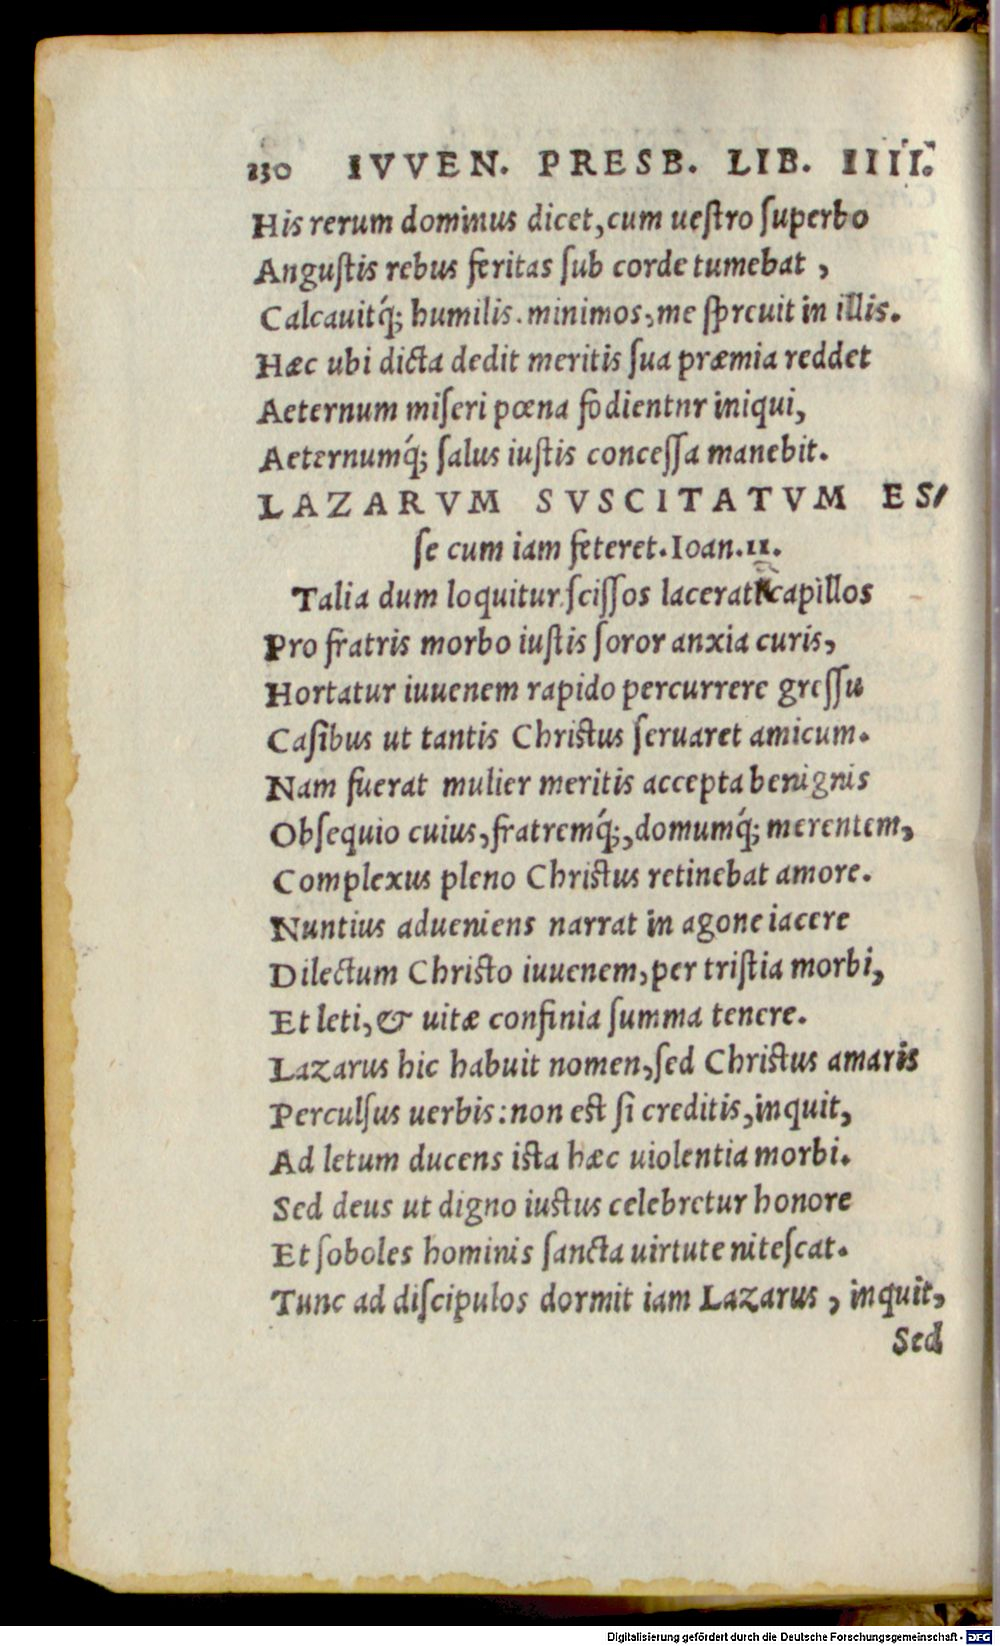 230 IVVEN. PRESB. LIB. IIII.
His rerum dominus dicet, cum ueſtro ſuperbo
Anguſtis rebus feritas ſub corde tumebat ,
Calcauitq́; humilis. minimos, me ſpreuit in illis.
Hæc ubi dicta dedit meritis ſua præmia reddet
Aeternum miſeri pœna fodientnr iniqui,
Aeternumq́; ſalus iuſtis conceſſa manebit.
LAZARVM SVSCITATVM ES/
ſe cum iam feteret. Ioan. 11.
Talia dum loquitur ſciſſos capillos
Pro fratris morbo iuſtis ſoror anxia curis,
Hortatur iuuenem rapido percurrere greſſu
Caſibus ut tantis Chriſtus ſeruaret amicum.
Nam fuerat mulier meritis accepta benignis
Obſequio cuius, fratremq́;, domumq́; merentem,
Complexus pleno Chriſtus retinebat amore.
Nuntius adueniens narrat in agone iacere
Dilectum Chriſto iuuenem, per triſtia morbi,
Et leti, & uitæ confinia ſumma tenere.
Lazarus hic habuit nomen, ſed Chriſtus amaris
Perculſus uerbis: non eſt ſi creditis, inquit,
Ad letum ducens iſta hæc uiolentia morbi.
Sed deus ut digno iuſtus celebretur honore
Et ſoboles hominis ſancta uirtute niteſcat.
Tunc ad diſcipulos dormit iam Lazarus , inquit,
Sed
Digitalisierung gefördert durch die Deutsche Forschungsgemeinschaft - DFG